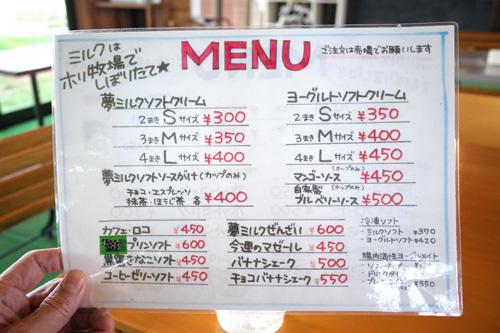 ミルクは
ホリ牧場で
しぼりたて★
MENU
ご注文は売場でお願いします
夢ミルクソフトクリーム
2まき Sサイズ ¥300
3まき Mサイズ ¥350
4まき Lサイズ ¥400
夢ミルクソフトソースがけ(カップのみ)
チョコ・エスプレッソ
抹茶・ほうじ茶 各 ¥400
ヨーグルトソフトクリーム
2まき Sサイズ ¥350
3まき Mサイズ ¥400
4まき Lサイズ ¥450
マンゴーソース (カップのみ) ¥450
自家製 (カップのみ)
ブルーベリーソース ¥500
カフェ・ロコ ¥450
プリンソフト ¥600
黒蜜きなこソフト ¥450
コーヒーゼリーソフト ¥450
夢ミルクぜんざい ¥600
今週のマゼール ¥450
バナナシェーク ¥500
チョコバナナシェーク ¥550
冷凍ソフト
・ミルクソフト ¥370
・ヨーグルトソフト ¥420
腸内活性ヨーグルメイト
¥550